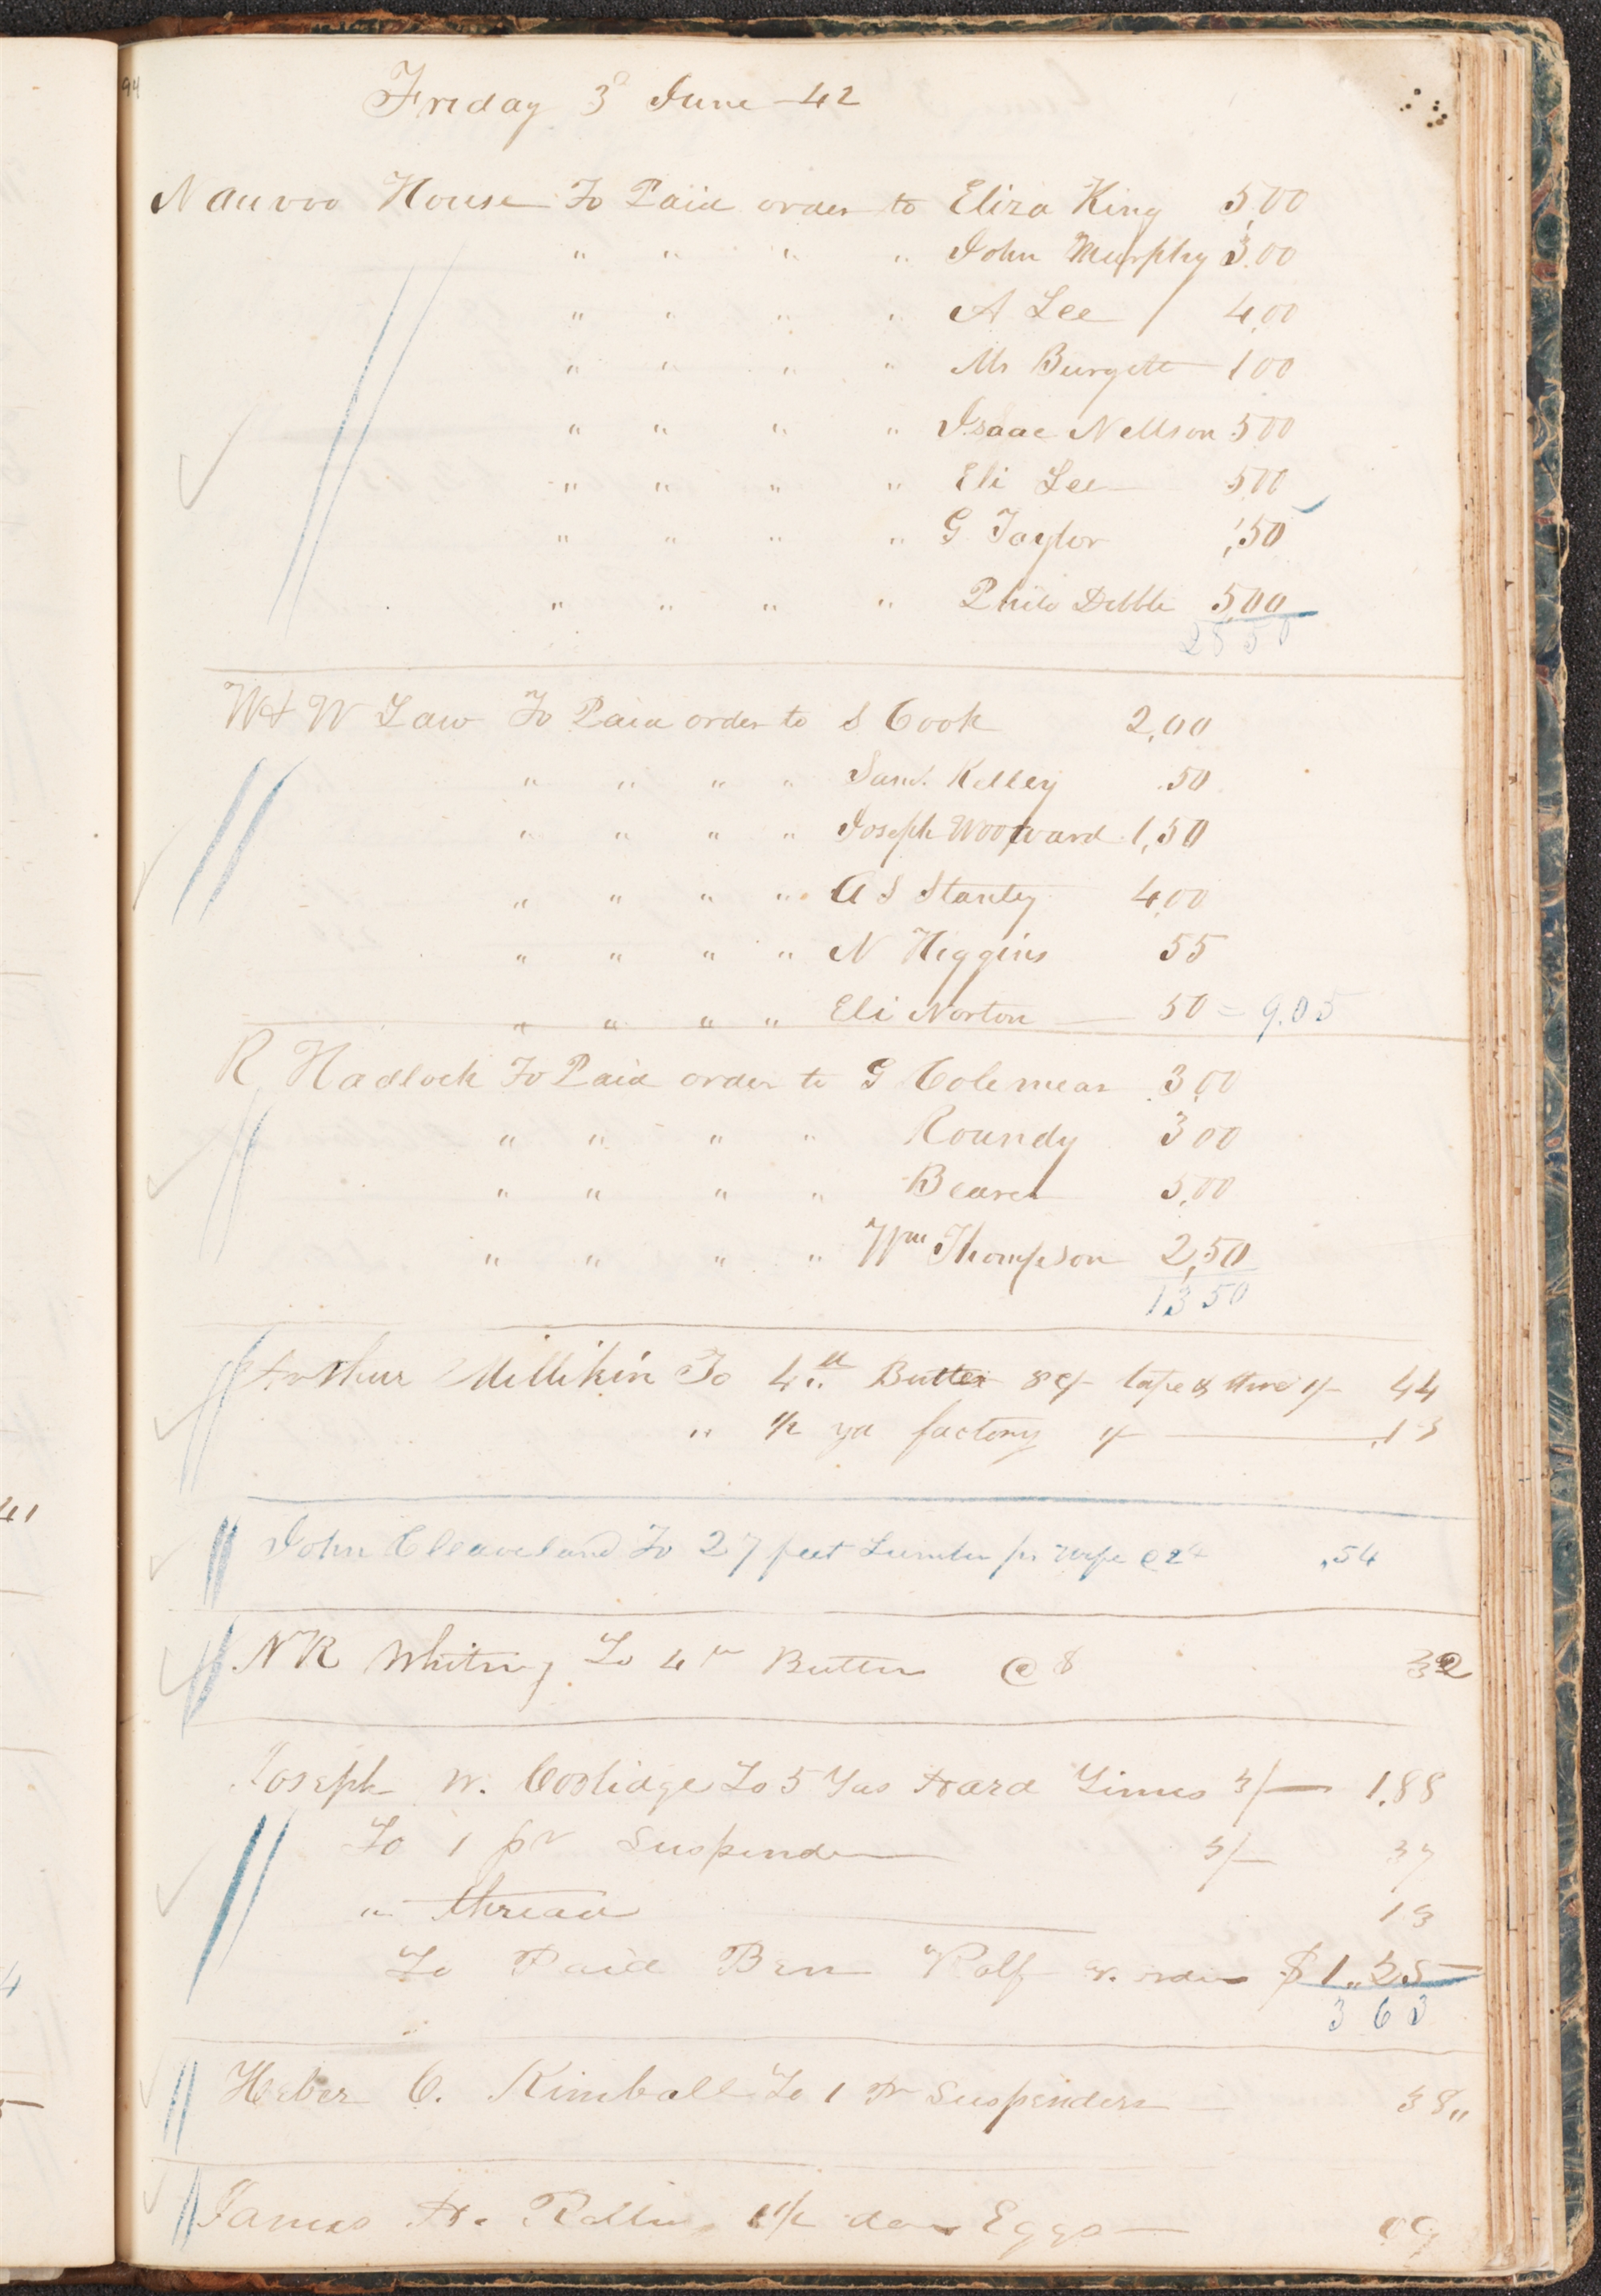 94
Friday 3d June 42
Nauvoo House To Paid order to Eliza King 5,00
" " " " John Murphy 3.00
" " " " A Lee 4,00
" " " " Mr Burgett 1 00
" " " " Isaac Nellson 5 00
" " " " Eli Lee 5 00
" " " " G Taylor ,50
" " " " Philo Dibble 5,00
28 50
W & W Law To Paid order to S Cook 2,00
" " " " Saml. Kelley .50
" " " " Joseph Woodward 1,50
" " " " A S Stanley 4,00
" " " " N Higgins 55
" " " " Eli Norton 50 = 9.05
R Hadlock To Paid order to G Colemear 3,00
" " " " Roundy 3 00
" " " " Beard 5,00
" " " " Wm Thompson 2,50
13 50
Arthur Millikin To 4 lb Butter 8c/ tape & thre 1/- 44
" 1/2 yd factory 1/- .13
John Cleaveland To 27 feet Lumber pr wife @ 2c ,54
N K Whitney To 4 lb Butter @ 8 32
Joseph W. Coolidge To 5 Yds Hard Times 3/- 1.88
To 1 pr Suspender 3/- 37
" thread 13
To Paid Ben Rolf order $1.,25
3 63
Heber C. Kimball To 1 Pr Suspenders 38,,
James H. Rollins 1 1/2 doz Eggs 09
41
4
5